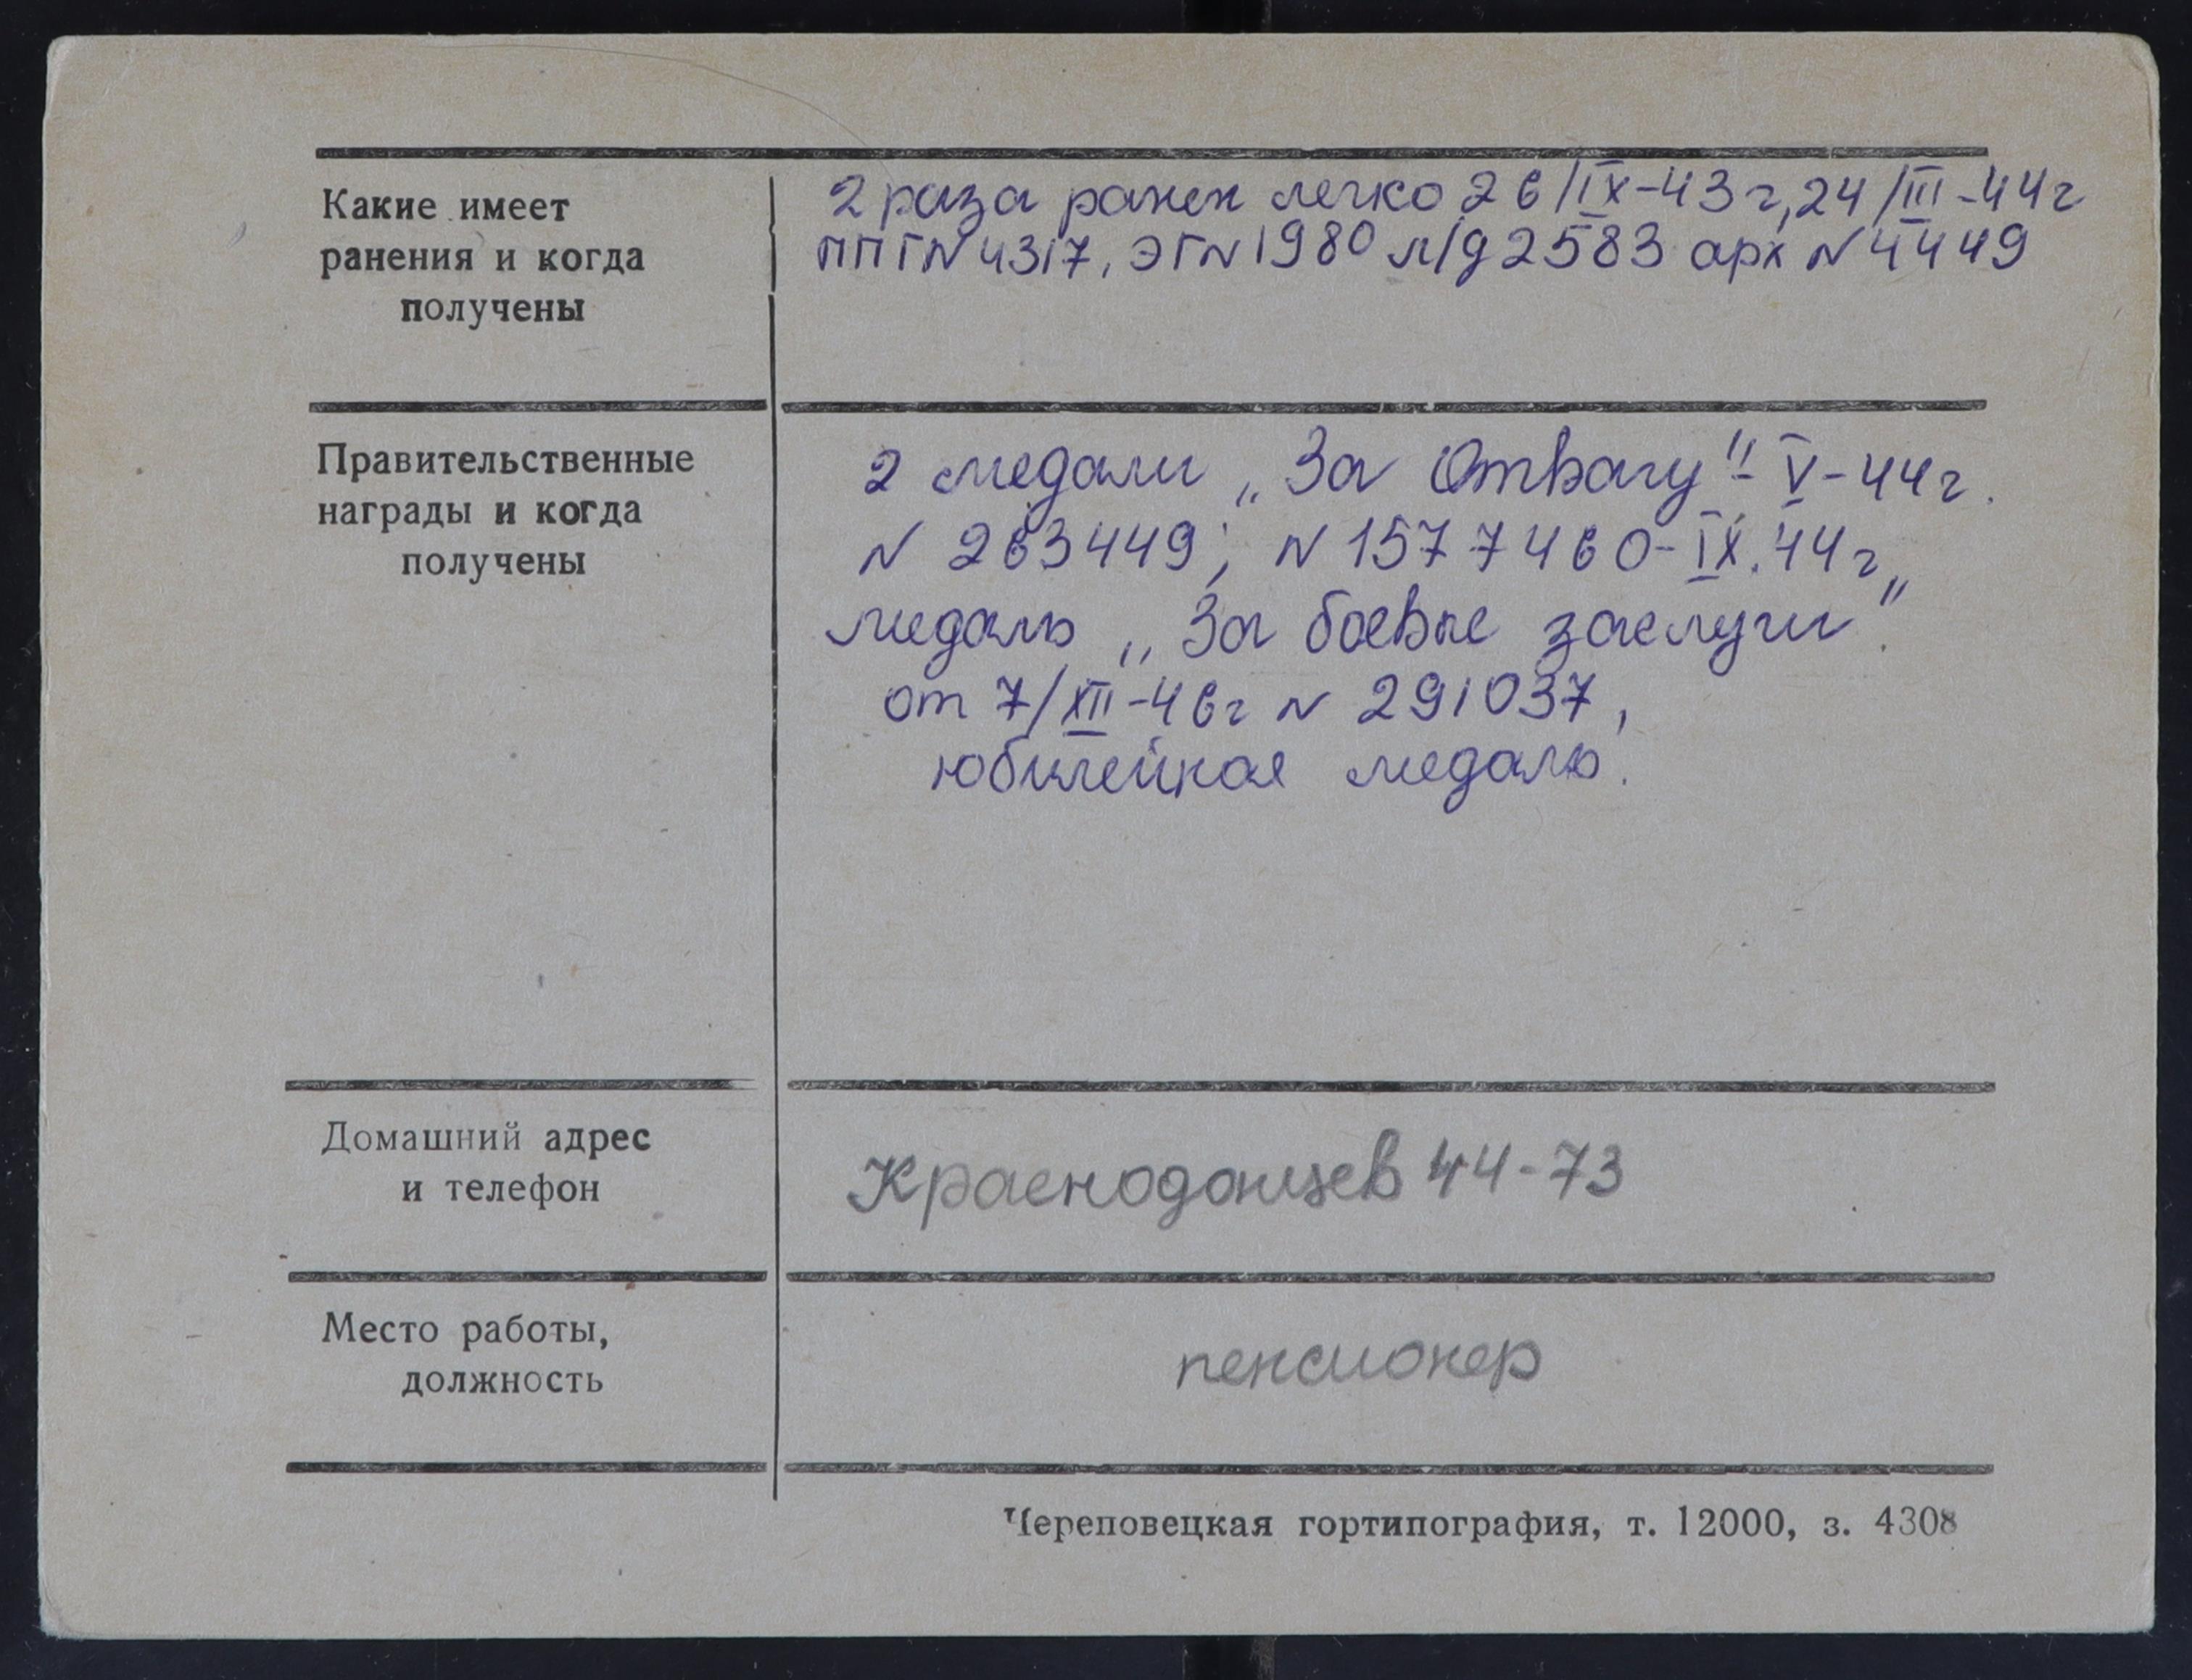 Какие имеет
ранения и когда
получены
2 раза ранен легко 26/IX-43г, 24/III-44г
ППГN 4317, ЭГN 1980 л/д 2583 арх N 4449
Правительственные
награды и когда
получены
2 медали „За Отвагу" - V-44г.
N 263449; N 1577460-IX.44г„
медаль „За боевые заслуги".
от 7/XII-46г N 291037,
юбилейная медаль.
Домашний адрес
и телефон
Краснодонцев 44-73
Место работы,
должность
пенсионер
Череповецкая гортипография, т. 12000, з. 4308